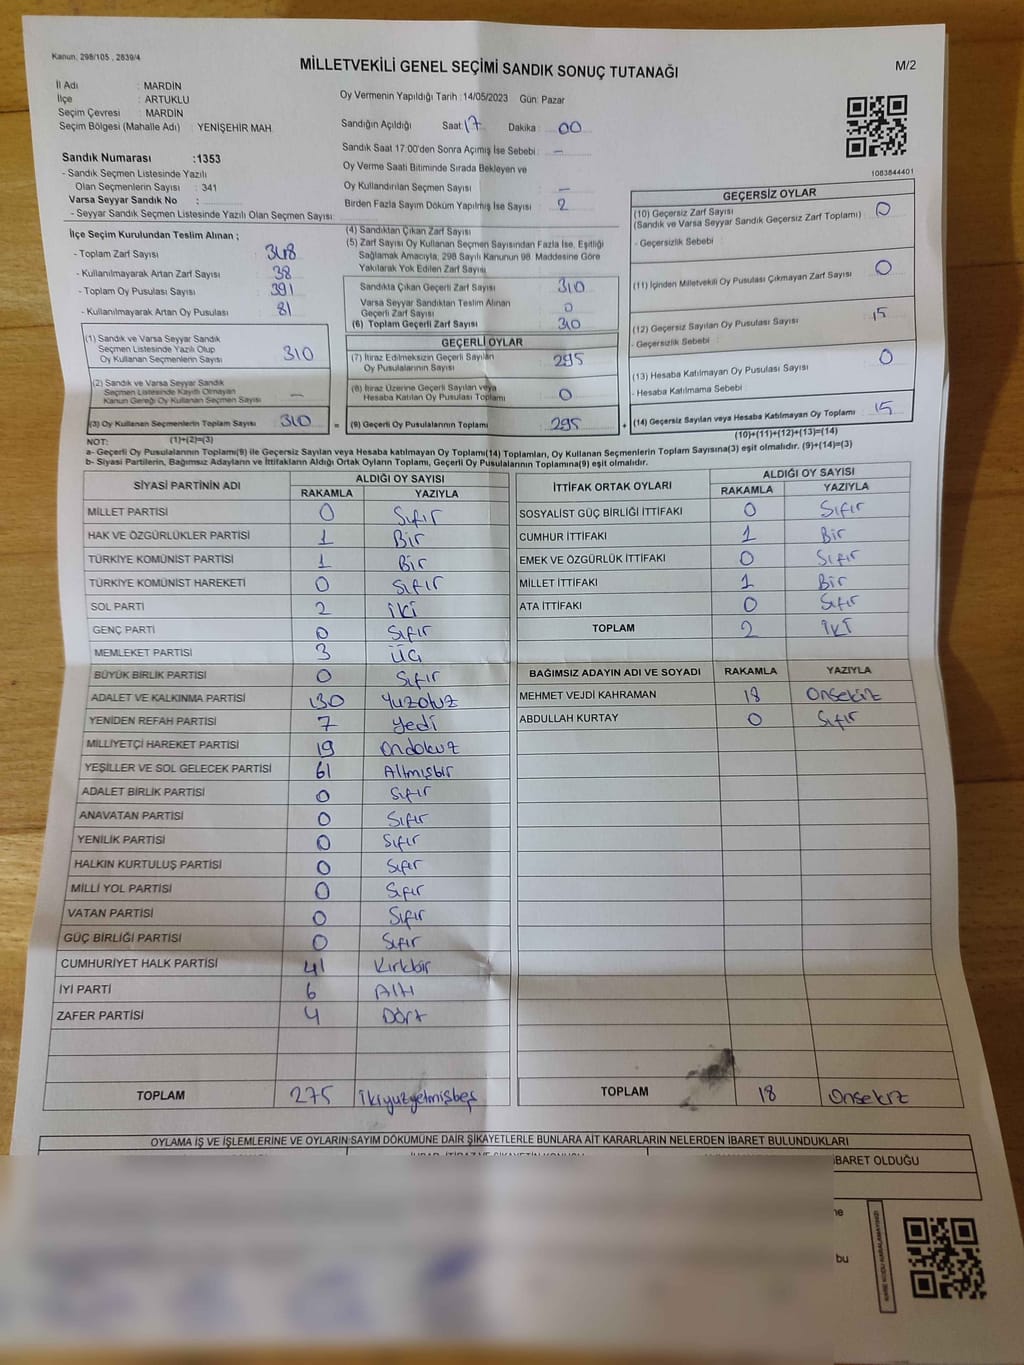 Kanun: 298/105 , 2839/4
MİLLETVEKİLİ GENEL SEÇİMİ SANDIK SONUÇ TUTANAĞI
M/2
İl Adı : MARDİN
İlçe : ARTUKLU
Seçim Çevresi : MARDİN
Seçim Bölgesi (Mahalle Adı) : YENİŞEHİR MAH.
Oy Vermenin Yapıldığı Tarih :14/05/2023 Gün: Pazar
Sandığın Açıldığı Saat 17 Dakika : 00
Sandık Saat 17:00'den Sonra Açılmış İse Sebebi : –
Oy Verme Saati Bitiminde Sırada Bekleyen ve
Oy Kullandırılan Seçmen Sayısı –
Birden Fazla Sayım Döküm Yapılmış İse Sayısı : 2
1083844401
Sandık Numarası :1353
- Sandık Seçmen Listesinde Yazılı
Olan Seçmenlerin Sayısı : 341
Varsa Seyyar Sandık No :
- Seyyar Sandık Seçmen Listesinde Yazılı Olan Seçmen Sayısı:
İlçe Seçim Kurulundan Teslim Alınan ;
- Toplam Zarf Sayısı : 348
- Kullanılmayarak Artan Zarf Sayısı : 38
- Toplam Oy Pusulası Sayısı : 391
- Kullanılmayarak Artan Oy Pusulası : 81
(1) Sandık ve Varsa Seyyar Sandık
Seçmen Listesinde Yazılı Olup
Oy Kullanan Seçmenlerin Sayısı 310
(2) Sandık ve Varsa Seyyar Sandık
Seçmen Listesinde Kayıtlı Olmayan
Kanun Gereği Oy Kullanan Seçmen Sayısı –
(3) Oy Kullanan Seçmenlerin Toplam Sayısı 310
(1)+(2)=(3)
(4) Sandıktan Çıkan Zarf Sayısı
(5) Zarf Sayısı Oy Kullanan Seçmen Sayısından Fazla İse, Eşitliği
Sağlamak Amacıyla, 298 Sayılı Kanunun 98. Maddesine Göre
Yakılarak Yok Edilen Zarf Sayısı
Sandıkta Çıkan Geçerli Zarf Sayısı 310
Varsa Seyyar Sandıktan Teslim Alınan
Geçerli Zarf Sayısı 0
(6) Toplam Geçerli Zarf Sayısı 310
GEÇERLİ OYLAR
(7) İtiraz Edilmeksizin Geçerli Sayılan
Oy Pusulalarının Sayısı 295
(8) İtiraz Üzerine Geçerli Sayılan veya
Hesaba Katılan Oy Pusulası Toplamı 0
= (9) Geçerli Oy Pusulalarının Toplamı 295
GEÇERSİZ OYLAR
(10) Geçersiz Zarf Sayısı 0
(Sandık ve Varsa Seyyar Sandık Geçersiz Zarf Toplamı)
- Geçersizlik Sebebi :
(11) İçinden Milletvekili Oy Pusulası Çıkmayan Zarf Sayısı 0
(12) Geçersiz Sayılan Oy Pusulası Sayısı 15
- Geçersizlik Sebebi :
(13) Hesaba Katılmayan Oy Pusulası Sayısı 0
- Hesaba Katılmama Sebebi :
+ (14) Geçersiz Sayılan veya Hesaba Katılmayan Oy Toplamı 15
(10)+(11)+(12)+(13)=(14)
NOT:
a- Geçerli Oy Pusulalarının Toplamı(9) ile Geçersiz Sayılan veya Hesaba Katılmayan Oy Toplamı(14) Toplamları, Oy Kullanan Seçmenlerin Toplam Sayısına(3) eşit olmalıdır. (9)+(14)=(3)
b- Siyasi Partilerin, Bağımsız Adayların ve İttifakların Aldığı Ortak Oyların Toplamı, Geçerli Oy Pusulalarının Toplamına(9) eşit olmalıdır.
SİYASİ PARTİNİN ADI ALDIĞI OY SAYISI
RAKAMLA YAZIYLA
MİLLET PARTİSİ 0 Sıfır
HAK VE ÖZGÜRLÜKLER PARTİSİ 1 Bir
TÜRKİYE KOMÜNİST PARTİSİ 1 Bir
TÜRKİYE KOMÜNİST HAREKETİ 0 Sıfır
SOL PARTİ 2 iki
GENÇ PARTİ 0 Sıfır
MEMLEKET PARTİSİ 3 Üç
BÜYÜK BİRLİK PARTİSİ 0 Sıfır
ADALET VE KALKINMA PARTİSİ 130 Yuzotuz
YENİDEN REFAH PARTİSİ 7 Yedi
MİLLİYETÇİ HAREKET PARTİSİ 19 Ondokuz
YEŞİLLER VE SOL GELECEK PARTİSİ 61 Altmışbir
ADALET BİRLİK PARTİSİ 0 Sıfır
ANAVATAN PARTİSİ 0 Sıfır
YENİLİK PARTİSİ 0 Sıfır
HALKIN KURTULUŞ PARTİSİ 0 Sıfır
MİLLİ YOL PARTİSİ 0 Sıfır
VATAN PARTİSİ 0 Sıfır
GÜÇ BİRLİĞİ PARTİSİ 0 Sıfır
CUMHURİYET HALK PARTİSİ 41 Kırkbir
İYİ PARTİ 6 Altı
ZAFER PARTİSİ 4 Dört
TOPLAM 275 ikiyuzyetmişbeş
İTTİFAK ORTAK OYLARI ALDIĞI OY SAYISI
RAKAMLA YAZIYLA
SOSYALİST GÜÇ BİRLİĞİ İTTİFAKI 0 Sıfır
CUMHUR İTTİFAKI 1 Bir
EMEK VE ÖZGÜRLÜK İTTİFAKI 0 Sıfır
MİLLET İTTİFAKI 1 Bir
ATA İTTİFAKI 0 Sıfır
TOPLAM 2 İKİ
BAĞIMSIZ ADAYIN ADI VE SOYADI RAKAMLA YAZIYLA
MEHMET VEJDİ KAHRAMAN 18 Onsekiz
ABDULLAH KURTAY 0 Sıfır
TOPLAM 18 Onsekiz
OYLAMA İŞ VE İŞLEMLERİNE VE OYLARIN SAYIM DÖKÜMÜNE DAİR ŞİKAYETLERLE BUNLARA AİT KARARLARIN NELERDEN İBARET BULUNDUKLARI
İBARET OLDUĞU
ne
bu
KARE KODU KARALAMAYINIZ!